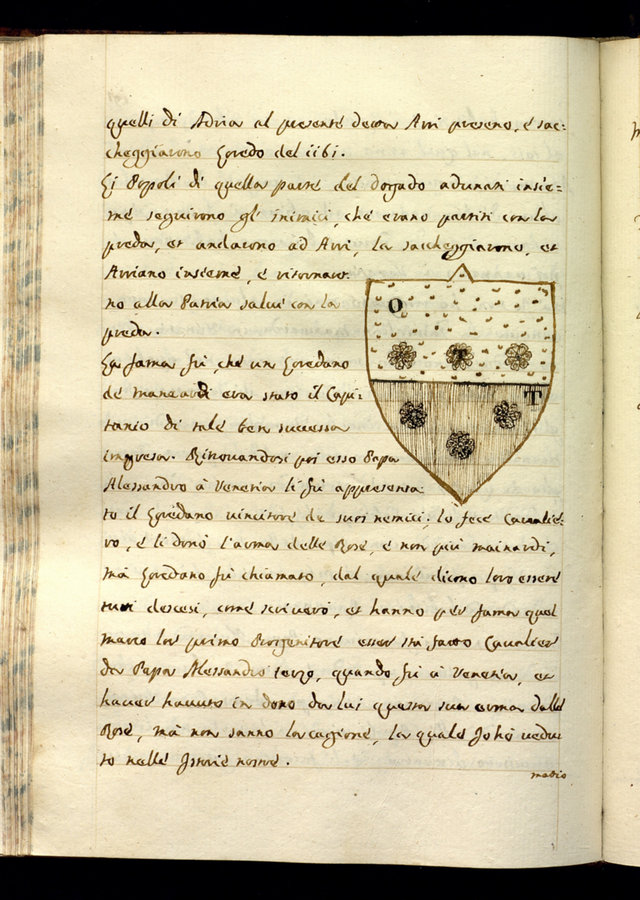 quelli di Adria al presente detta Arri preseno, é sac:
cheggiarono Loredo del 1161.
Li Popoli di quella parte del dogado adunati insie=
me seguirono gl' inimici, che erano partiti con la
preda, et andarono ad Arri, la saccheggiarono, et
Arriano insieme, e ritornaro
O
no alla Patria salui con la
preda.
La fama fù, che un Loredano
T
de manardi era stato il Capi:
T
tanio di tale ben successa
impresa. Ritrouandosi poi esso Papa
Alessandro à Venetia li fù appresenta
to il Loredano uincitore de suoi nemici; lo fece Caualie:
ro, é li donò l'arma delle Rose, e non più mainardi,
mà Loredano fù chiamato, dal quale dicono loro essere
tutti descesi, come scriuerò, et hanno per fama quel
marco lor primo Progenitore esser stà fatto Caualier
da Papa Alessandro terzo, quando fù à Venetia, et
hauer hauuto in dono da lui questa sua arma dalle
Rose, mà non sanno la cagione, la quale Jo hó uedu
to nelle Jstorie nostre.